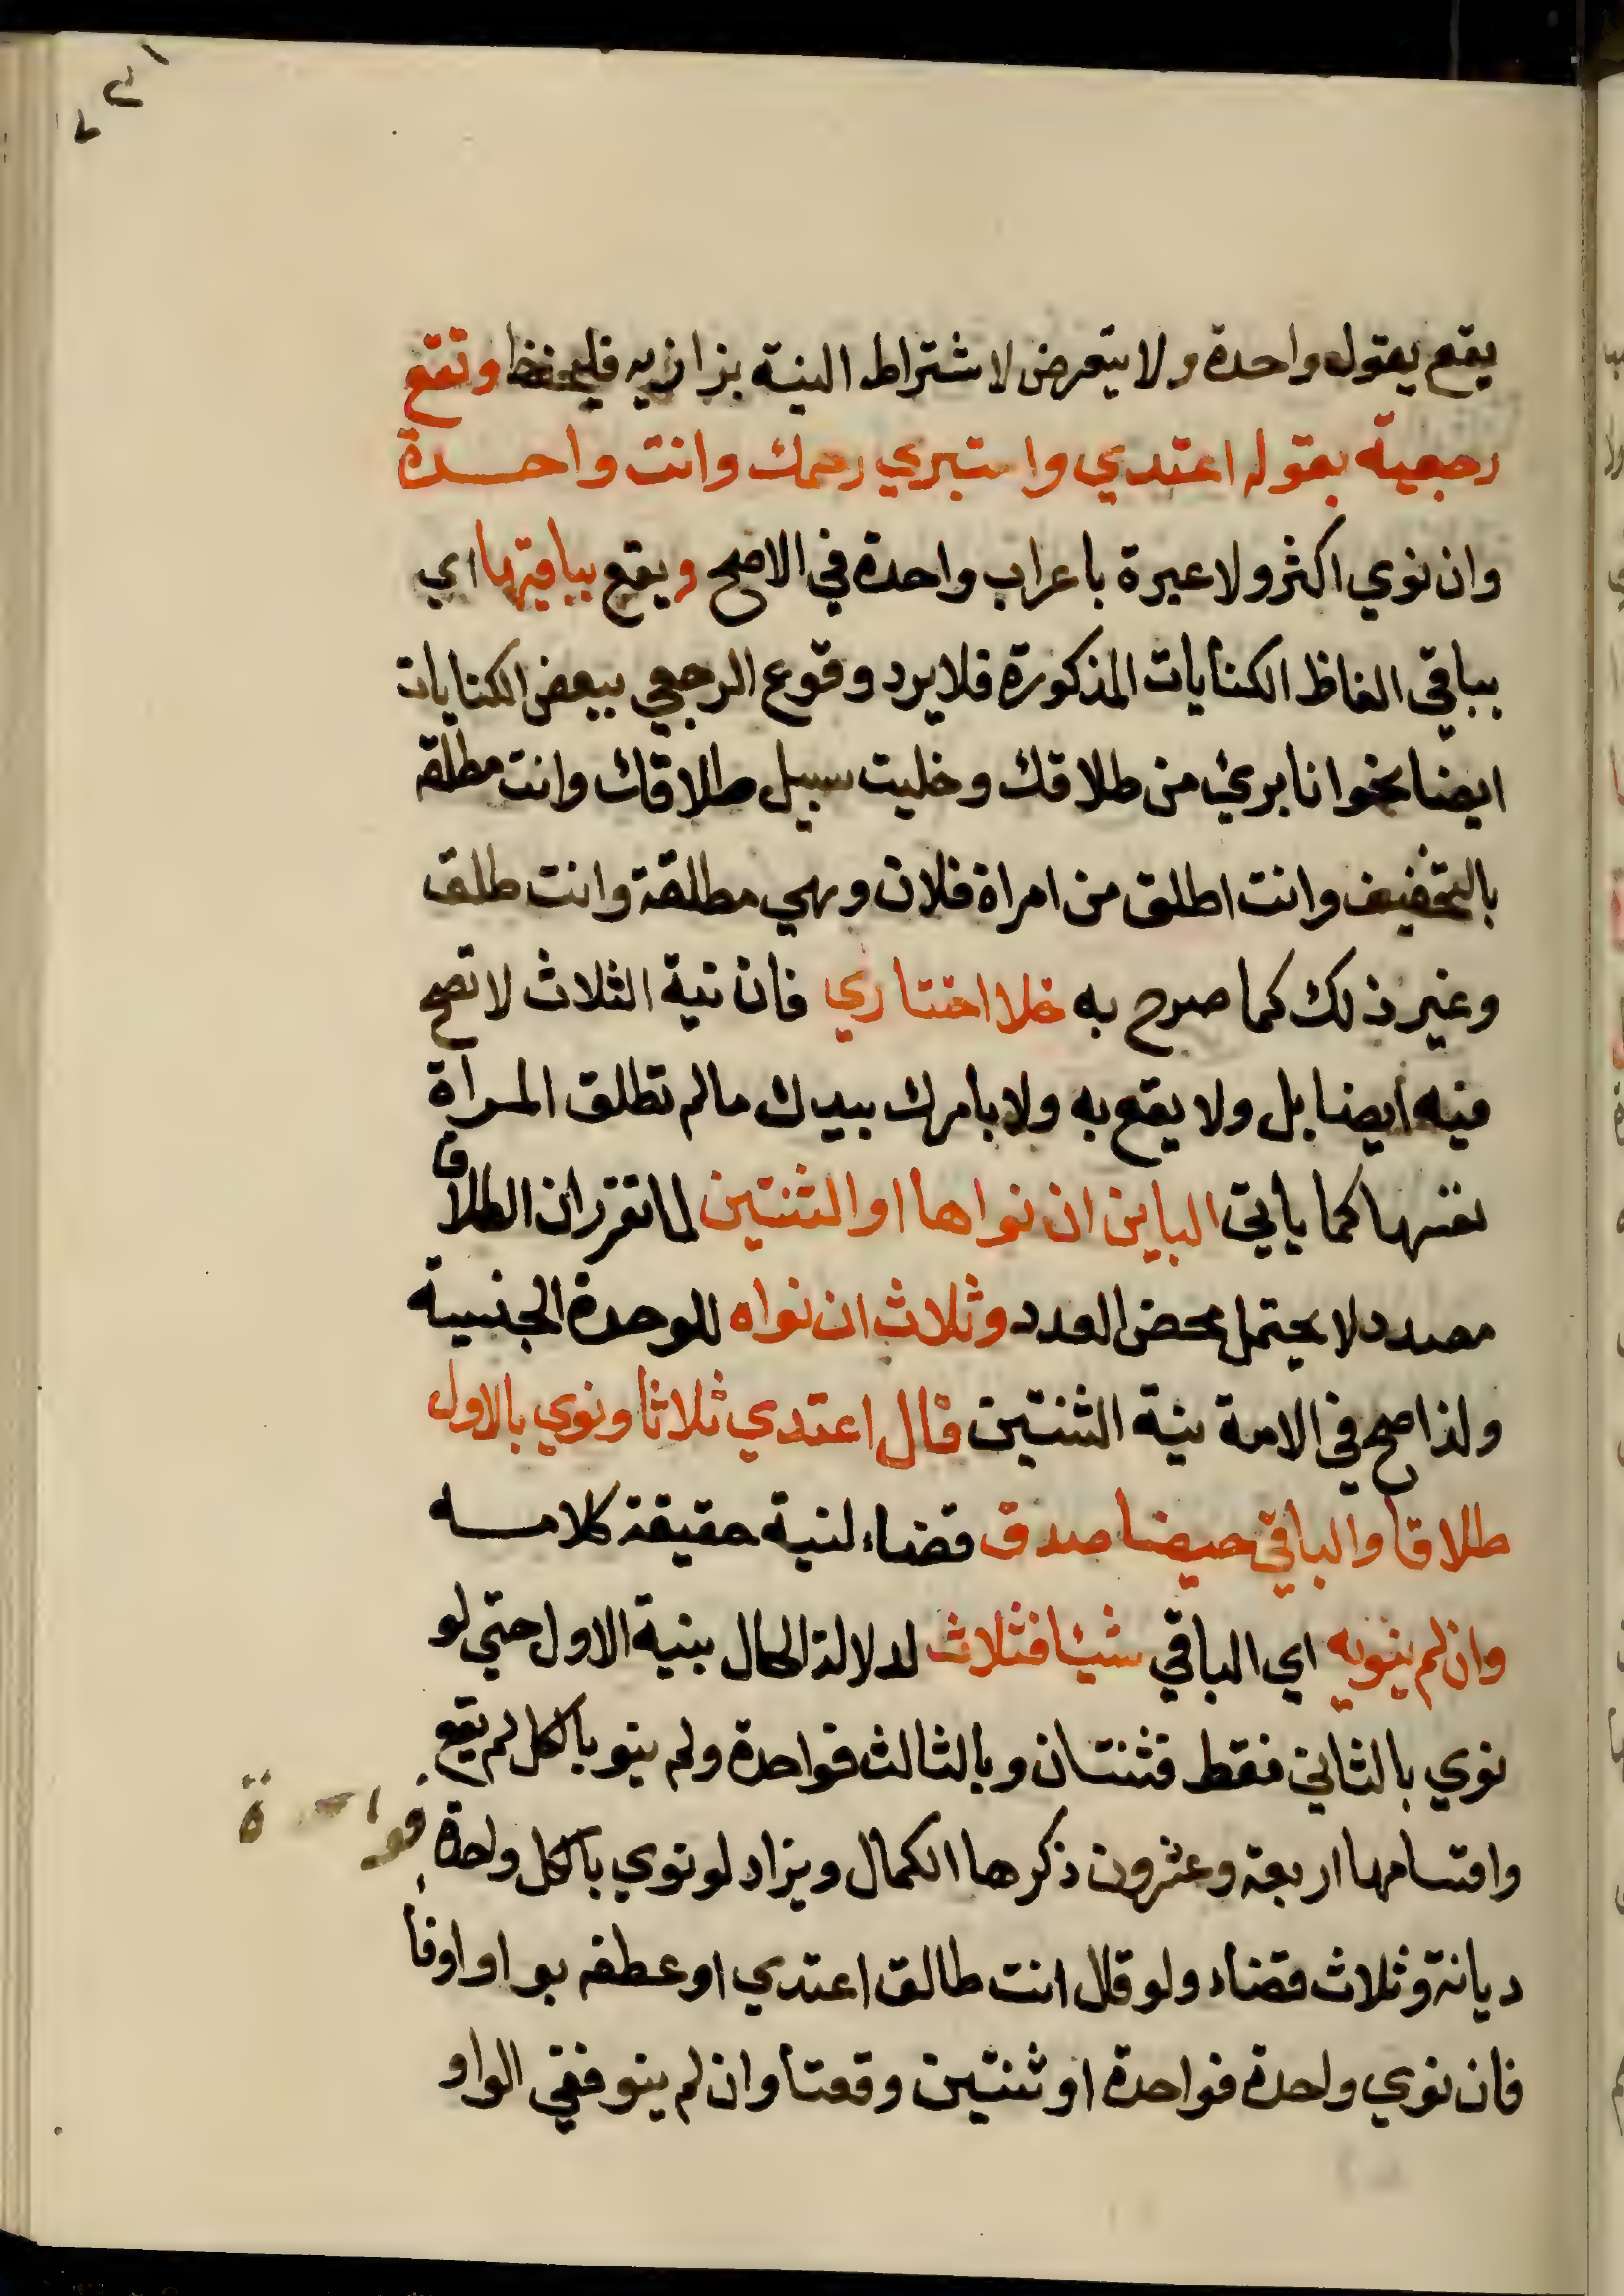 يقع يقول واحدة ولا يتعرض لاشتراط النية بزازيه فليحفظ وتقع
رجعية بقوله اعتدي واستبري رحمك وانت واحدة
وان نوي اكثر ولا عبرة باعراب واحدة في الاصح ويقع بباقيها اي
بباقي الفاظ الكنايات المذكورة فلا يرد وقوع الرجعي ببعض الكنايات
ايضا نحو انا بريئ من طلاقك وخليت سبيل طلاقك وانت مطلقة
بالتخفيف وانت اطلق من امراة فلان وهي مطلقة وانت طلق
وغير ذلك كما صرح به خلا اختاري فان نية الثلاث لا تصح
فيه ايضا بل ولا يقع به ولا بامرك بيدك مالم تطلق المرأة
نفسها كما ياتي الباين ان نواها او الثنتين لما تقرر ان الطلاق
مصدر لا يحتمل محض العدد وثلاث ان نواه للوحدة الجنسية
ولذا صح في الامة نية الثنتين قال اعتدي ثلاثا ونوي بالاول
طلاقا والباقي حيضا صدق قضاء لنية حقيقة كلامه
وان لم ينو به اي الباقي شيئا فثلاث لدلالة الحال بنية الاول حتي لو
نوي بالثاني فقط فثنتان وبالثالث فواحدة ولم ينو بالكل لم يقع
واقسامها اربعة وعشرون ذكرها الكمال ويزاد لو نوي بالكل واحدة فواحدة
ديانة وثلاث قضاء ولو قال انت طالق اعتدي او عطفه بواو او فا
فان نوي واحدة فواحدة او ثنتين وقعتا وان لم ينو ففي الواو